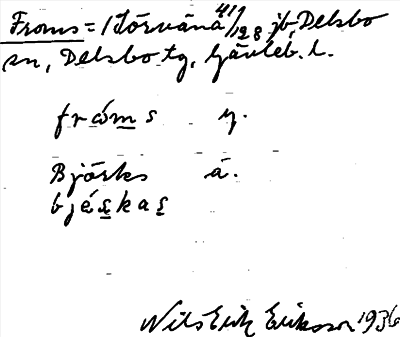 Froms = /Sörvåna 4 1/1 128 jb, Delsbo
sn, Delsbo tg, Gävleb. l.
fróms y.
Björks å.
bjéskas
Nils Erik Eriksson 1936